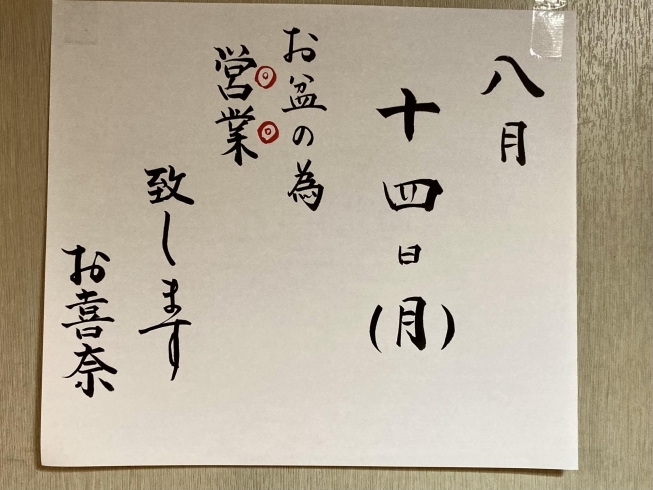 八月
十四日(月)
お盆の為
営業
致します
お喜奈